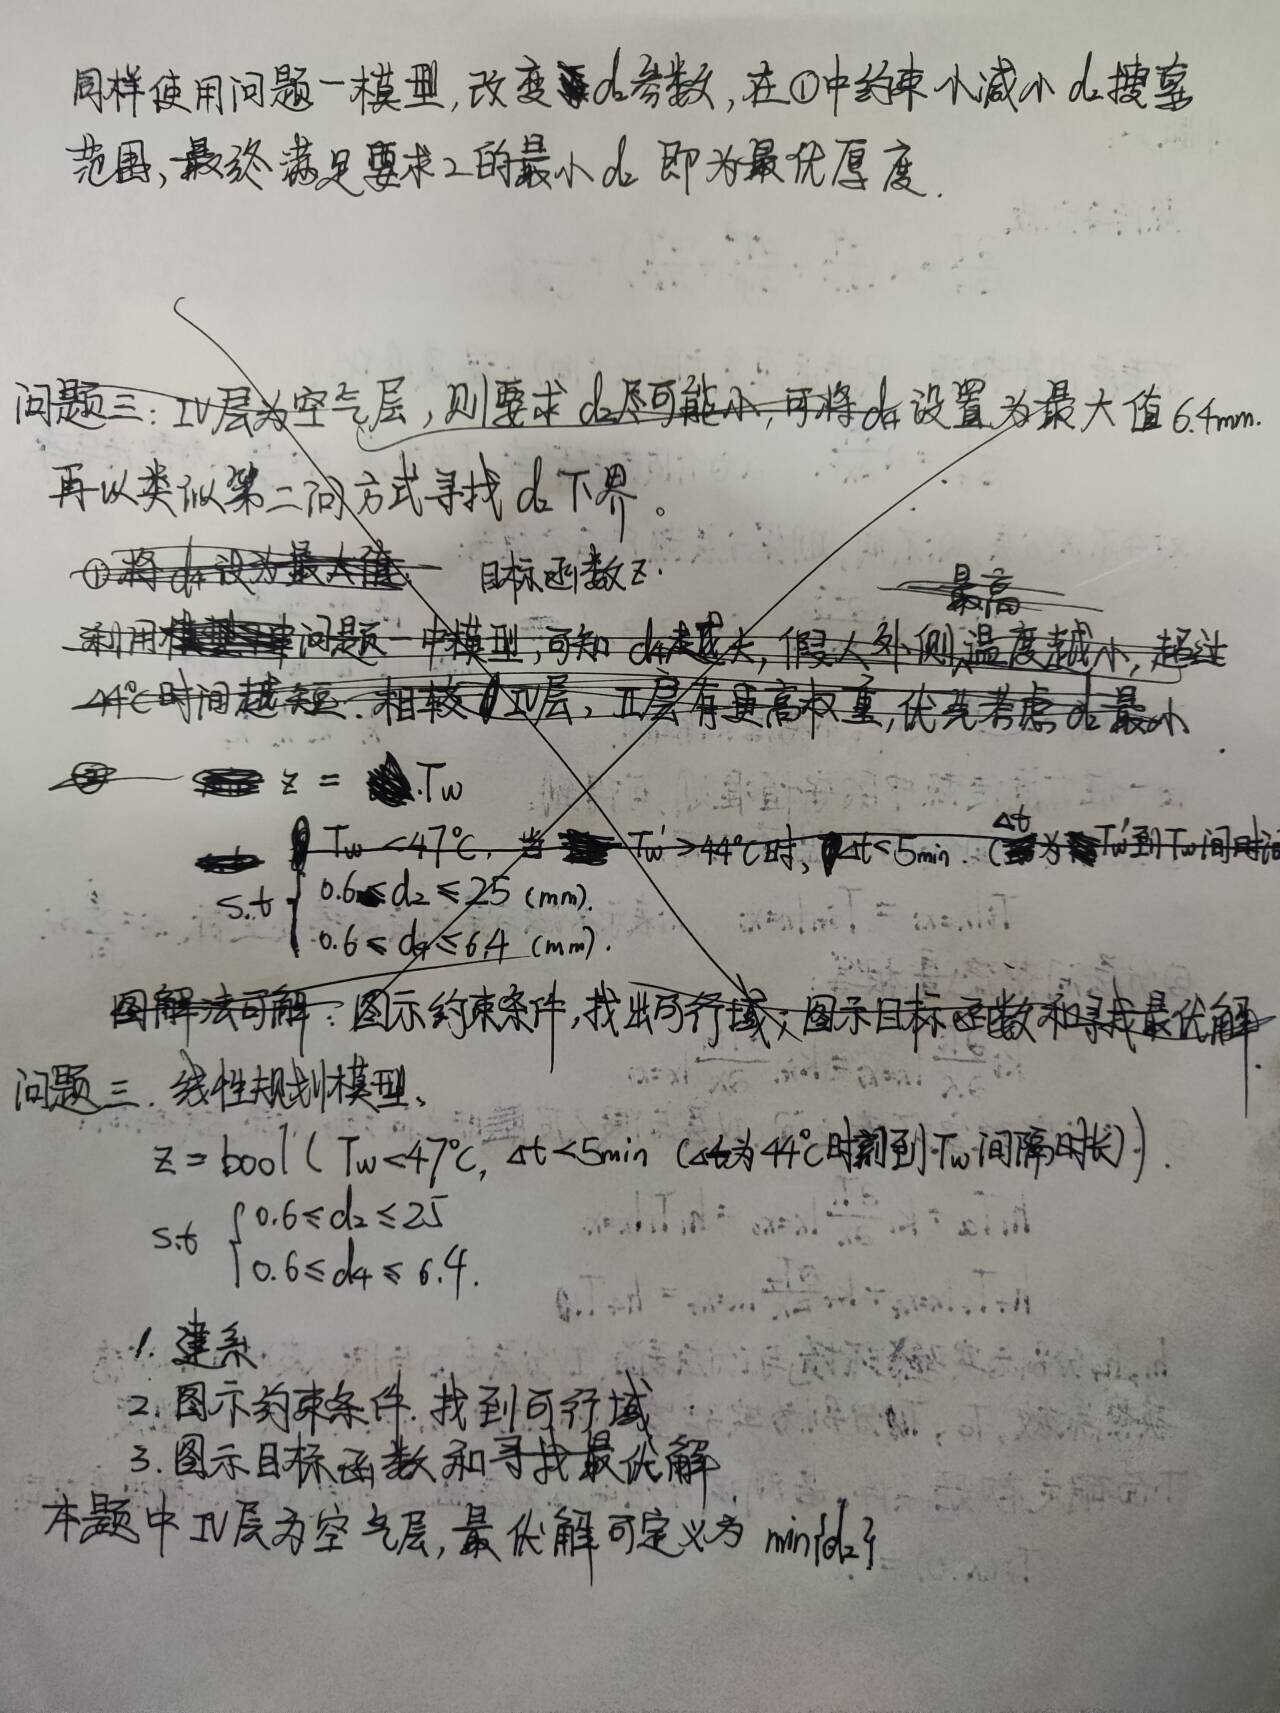 同样使用问题一模型,改变d₂参数,在①中约束小减小d₂搜索
范围,最终满足要求2的最小d₂即为最优厚度.
问题三:IV层为空气层,则要求d₂尽可能小,可将d₄设置为最大值6.4mm.
再以类似第二问方式寻找d₂下界。
①将d₄设为最大值 目标函数z.
最高
利用问题一中模型,可知d₄越大,假人外侧温度越小,超过
44℃时间越短.相较IV层,II层有更高权重,优先考虑d₂最小.
② z = Tw
Δt
Tw<47℃, 当Tw'>44℃时, Δt≤5min. (为Tw'到Tw间时
s.t 0.6≤d₂≤25 (mm).
0.6≤d₄≤6.4 (mm).
图解法可解:图示约束条件,找出可行域;图示目标函数和寻找最优解.
问题三.线性规划模型、
z=bool(Tw<47℃, Δt<5min (Δt为44℃时刻到Tw间隔时长)).
s.t { 0.6≤d₂≤25
0.6≤d₄≤6.4.
1.建系
2.图示约束条件.找到可行域
3.图示目标函数和寻找最优解
本题中IV层为空气层,最优解可定义为 min{d₂}